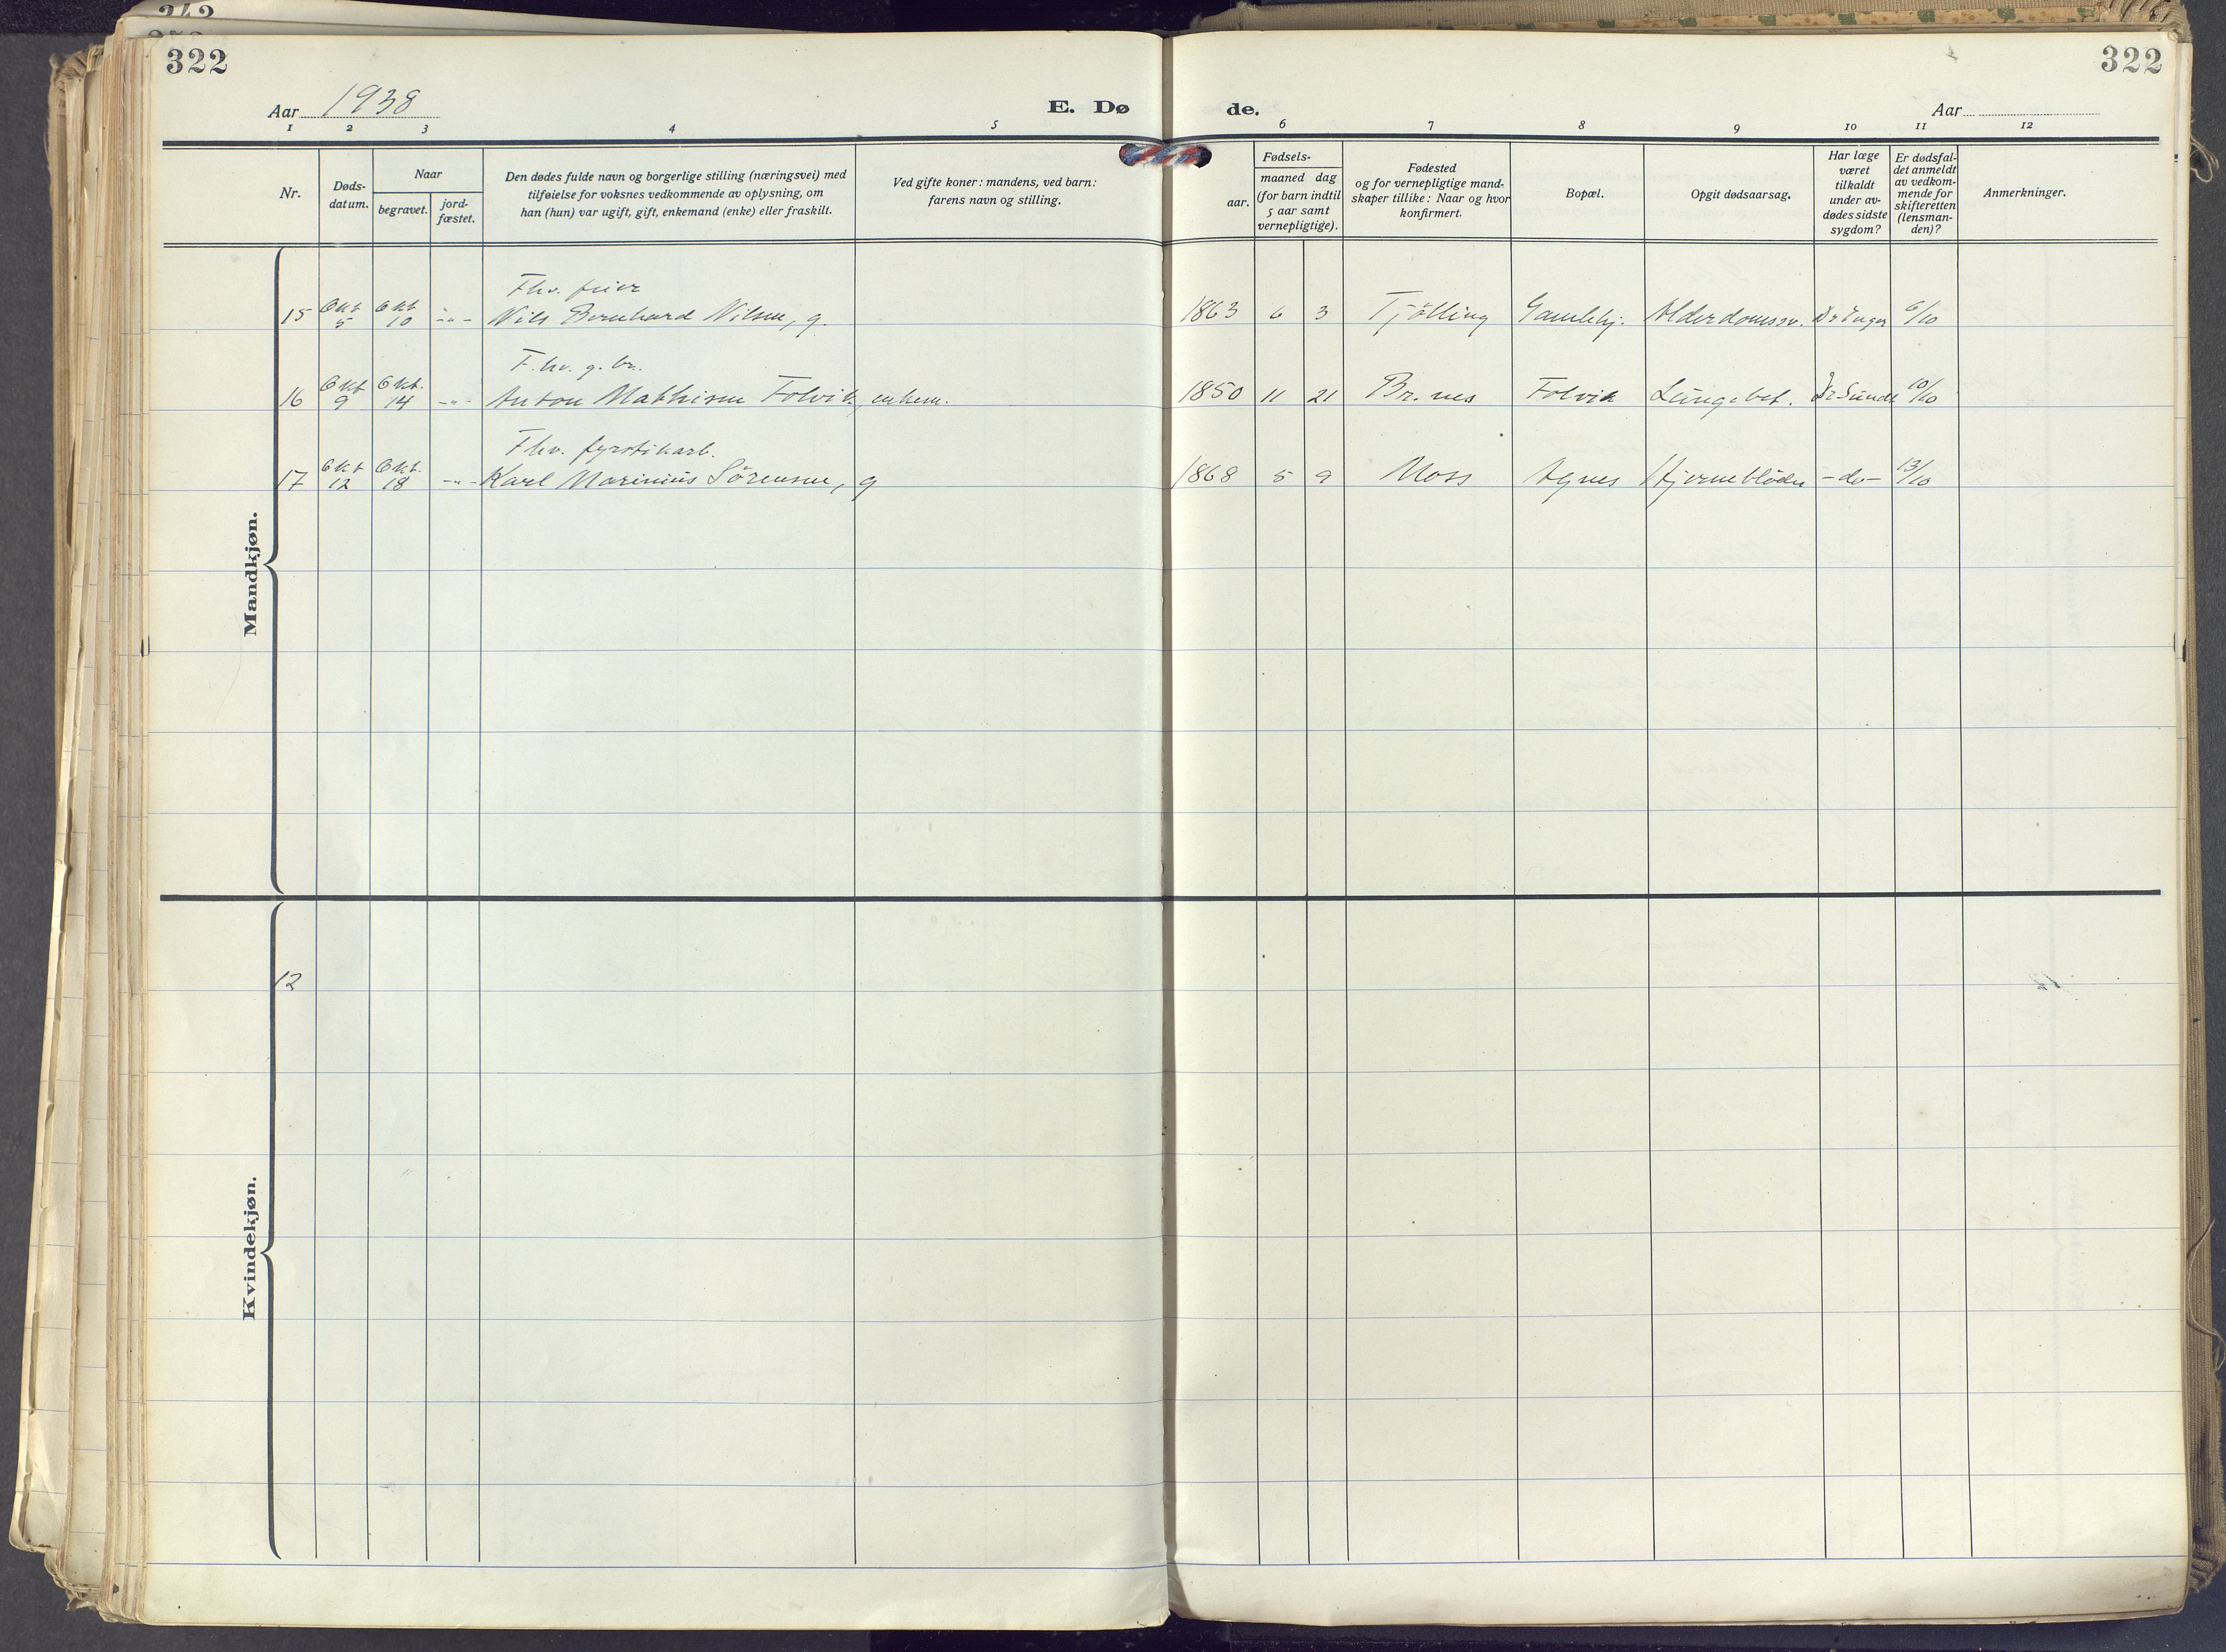 322
322
Aar 1938
E. Dø
de.
Aar
1 2 3 4 5 6 7 8 9 10 11 12
Nr.
Døds-
datum.
Naar
begravet.
jord-
fæstet.
Den dødes fulde navn og borgerlige stilling (næringsvei) med
tilføielse for voksnes vedkommende av oplysning, om
han (hun) var ugift, gift, enkemand (enke) eller fraskilt.
Ved gifte koner: mandens, ved barn:
farens navn og stilling.
aar.
Fødsels-
maaned dag
(for barn indtil
5 aar samt
vernepligtige).
Fødested
og for vernepligtige mand-
skaper tillike: Naar og hvor
konfirmert.
Bopæl.
Opgit dødsaarsag.
Har læge
været
tilkaldt
under av-
dødes sidste
sygdom?
Er dødsfal-
det anmeldt
av vedkom-
mende for
skifteretten
(lensman-
den)?
Anmerkninger.
Mandkjøn.
Fhv. feier
15 Okt 5 Okt 10 -"- Nils Bernhard Nilsen, g. 1863 6 3 Tjölling Gamlehj. Alderdomssv. Dr Unger 6/10
F.hv. g.br.
16 Okt 9 Okt. 14 -"- Anton Mathisen Folvik, enkem. 1850 11 21 Br.nes Folvik Lungebet. Dr Sunde 10/10
Fhv. fyrstikarb.
17 Okt 12 Okt. 18 -"- Karl Marinius Sörensen, g 1868 5 9 Moss Agnes Hjerneblödn -do- 13/10
Kvindekjøn.
12